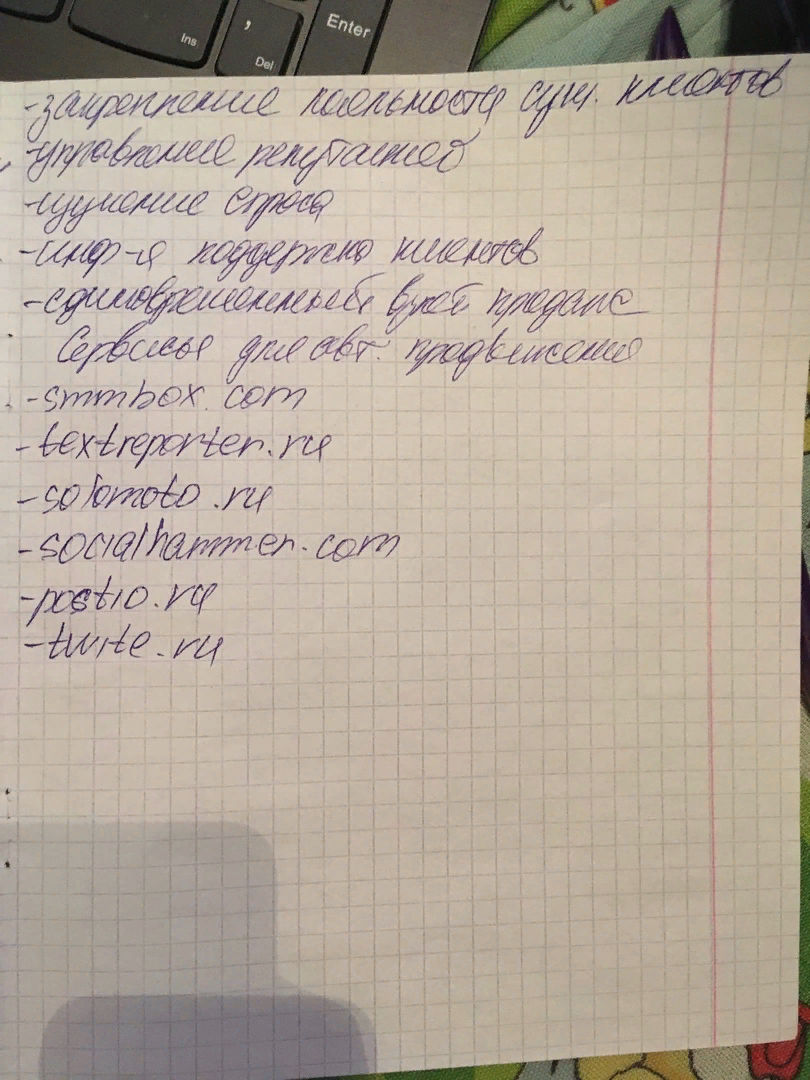 Ins
,
Del
Enter
-закрепление лояльности сущ. клиентов
-управление репутацией
-изучение спроса
-инф-я поддержка клиентов
-единовременный взлёт продаж
Сервисы для авт. продвижения
-smmbox.com
-textreporter.ru
-solomoto.ru
-socialhammer.com
-postio.ru
-twite.ru